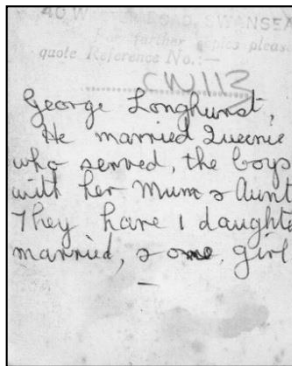 40 W ROAD, SWANSEA
For further copies pleas
quote Reference No.:—
CW113
George Longhurst,
He married Queenie
who served, the boys
with her Mum & Aunt
They have 1 daughte
married, & one, girl
—